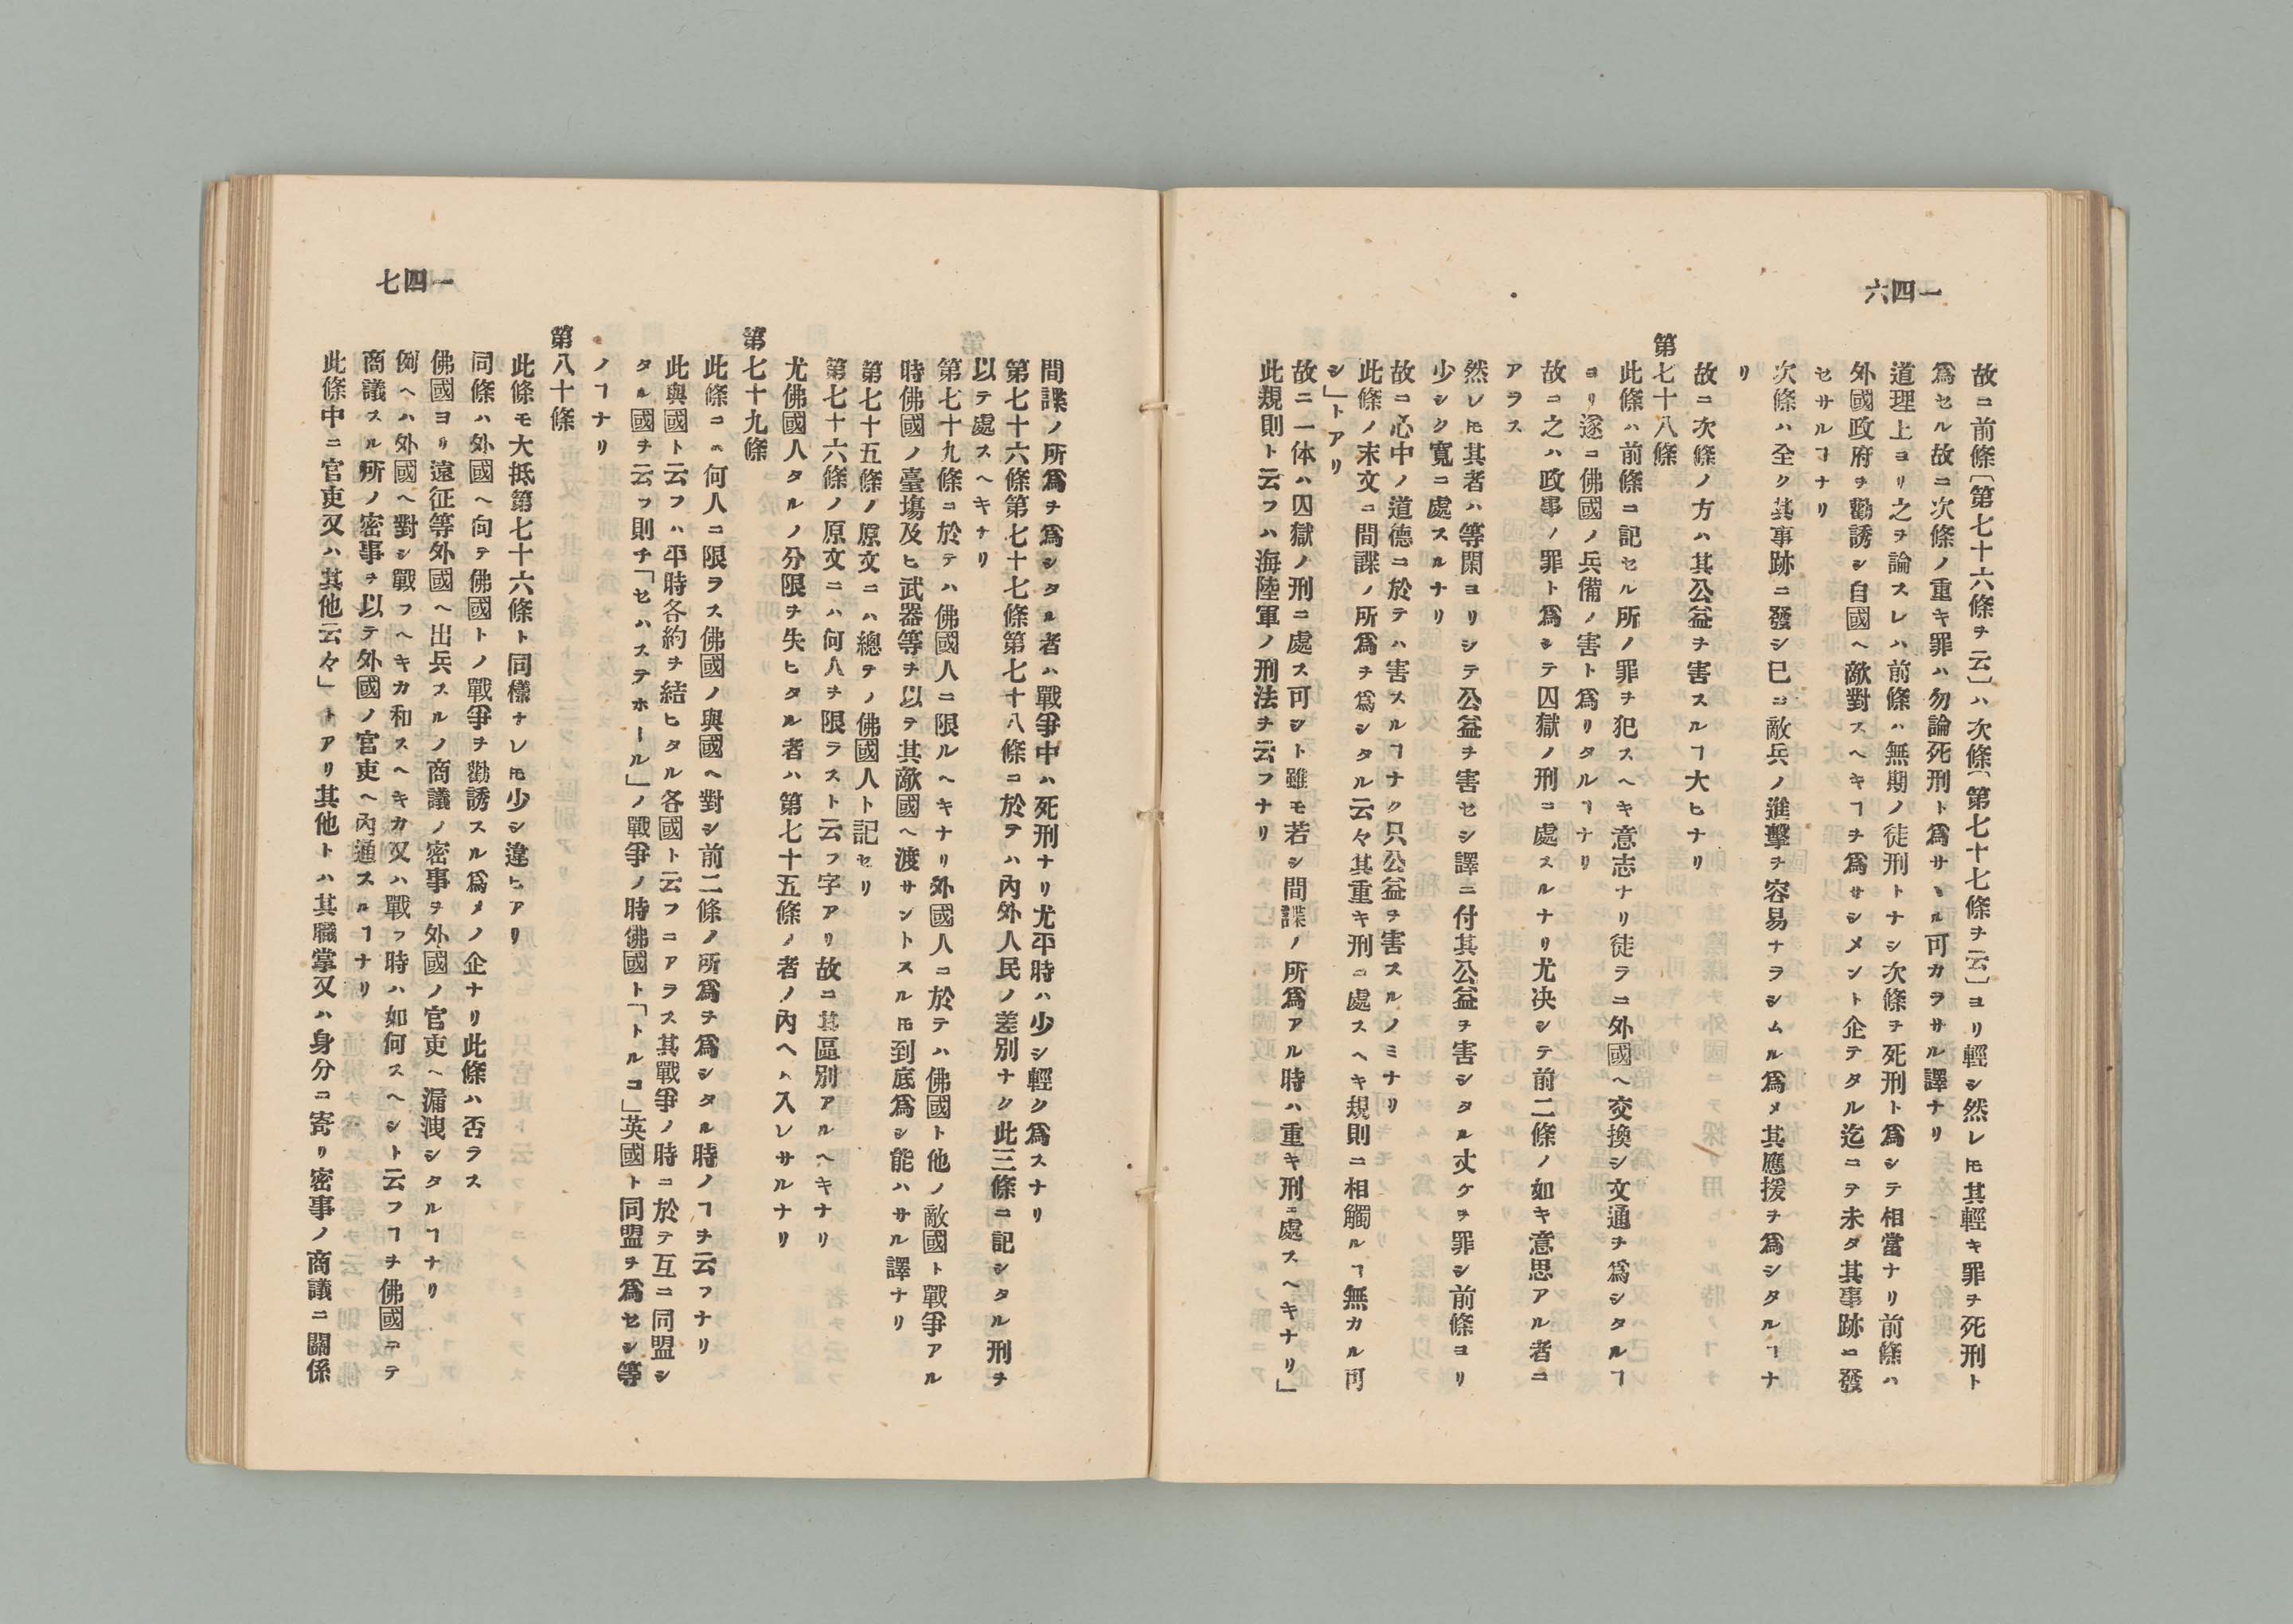 一四六
故ニ前條〔第七十六條ヲ云〕ハ次條〔第七十七條ヲ云〕ヨリ輕シ然レ𪜈其輕キ罪ヲ死刑ト
爲セル故ニ次條ノ重キ罪ハ勿論死刑ト爲サヽル可カラサル譯ナリ
道理上ヨリ之ヲ論スレハ前條ハ無期ノ徒刑トナシ次條ヲ死刑ト爲シテ相當ナリ前條ハ
外國政府ヲ勸誘シ自國ヘ敵對スヘキヿヲ爲サシメント企テタル迄ニテ未タ其事跡ニ發
セサルヿナリ
次條ハ全ク其事跡ニ發シ已ニ敵兵ノ進擊ヲ容易ナラシムル爲メ其應援ヲ爲シタルヿナ
リ
故ニ次條ノ方ハ其公益ヲ害スルヿ大ヒナリ
第七十八條
此條ハ前條ニ記セル所ノ罪ヲ犯スヘキ意志ナリ徒ラニ外國ヘ交換シ文通ヲ爲シタルヿ
ヨリ遂ニ佛國ノ兵備ノ害ト爲リタルヿナリ
故ニ之ハ政事ノ罪ト爲シテ囚獄ノ刑ニ處スルナリ尤决シテ前二條ノ如キ意思アル者ニ
アラス
然レ𪜈其者ハ等閑ヨリシテ公益ヲ害セシ譯ニ付其公益ヲ害シタル丈ケヲ罪シ前條ヨリ
少シク寬ニ處スルナリ
故ニ心中ノ道德ニ於テハ害スルヿナク只公益ヲ害スルノミナリ
此條ノ末文ニ間諜ノ所爲ヲ爲シタル云々其重キ刑ニ處スヘキ規則ニ相觸ルヿ無カル可
シ」トアリ
故ニ一体ハ囚獄ノ刑ニ處ス可シト雖モ若シ間諜ノ所爲アル時ハ重キ刑ニ處スヘキナリ」
此規則ト云フハ海陸軍ノ刑法ヲ云フナリ
一四七
間諜ノ所爲ヲ爲シタル者ハ戰爭中ハ死刑ナリ尤平時ハ少シ輕ク爲スナリ
第七十六條第七十七條第七十八條ニ於テハ內外人民ノ差別ナク此三條ニ記シタル刑ヲ
以テ處スヘキナリ
第七十九條ニ於テハ佛國人ニ限ルヘキナリ外國人ニ於テハ佛國ト他ノ敵國ト戰爭アル
時佛國ノ臺塲及ヒ武器等ヲ以テ其敵國ヘ渡サントスル𪜈到底爲シ能ハサル譯ナリ
第七十五條ノ原文ニハ總テノ佛國人ト記セリ
第七十六條ノ原文ニハ何人ヲ限ラスト云フ字アリ故ニ其區別アルヘキナリ
尤佛國人タルノ分限ヲ失ヒタル者ハ第七十五條ノ者ノ內ヘハ入レサルナリ
第七十九條
此條ニハ何人ニ限ラス佛國ノ與國ヘ對シ前二條ノ所爲ヲ爲シタル時ノヿヲ云フナリ
此與國ト云フハ平時各約ヲ結ヒタル各國ト云フニアラス其戰爭ノ時ニ於テ互ニ同盟シ
タル國ヲ云フ則チ「セハステホール」ノ戰爭ノ時佛國ト「トルコ」英國ト同盟ヲ爲セシ等
ノヿナリ
第八十條
此條モ大抵第七十六條ト同樣ナレ𪜈少シ違ヒアリ
同條ハ外國ヘ向テ佛國トノ戰爭ヲ勸誘スル爲メノ企ナリ此條ハ否ラス
佛國ヨリ遠征等外國ヘ出兵スルノ商議ノ密事ヲ外國ノ官吏ヘ漏洩シタルヿナリ
例ヘハ外國ヘ對シ戰フヘキカ和スヘキカ又ハ戰フ時ハ如何スヘシト云フヿヲ佛國ニテ
商議スル所ノ密事ヲ以テ外國ノ官吏ヘ內通スルヿナリ
此條中ニ官吏又ハ其他云々」トアリ其他トハ其職掌又ハ身分ニ寄リ密事ノ商議ニ關係